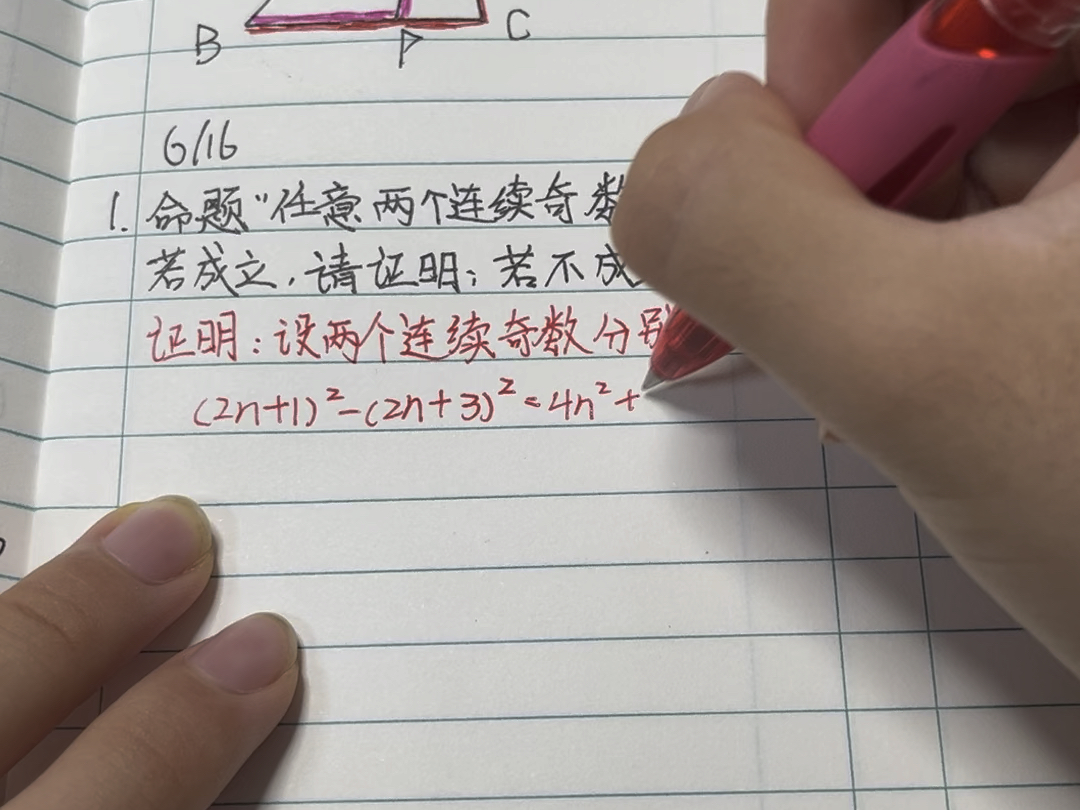 B P C
6/16
1. 命题“任意两个连续奇数
若成立,请证明;若不成
证明:设两个连续奇数分别
(2n+1)²-(2n+3)²=4n²+